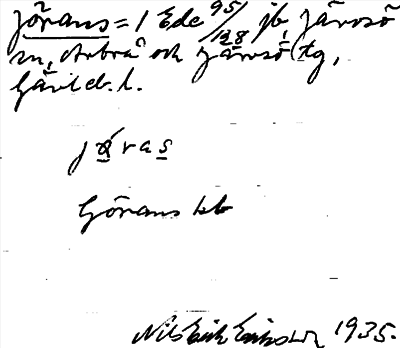 Jörans = 1 Ede 95/128 jb, Järvsö
sn, Arbrå och Järvsö tg,
Gävleb. l.
jöras
Görans kb
Nils Erik Eriksson 1935.